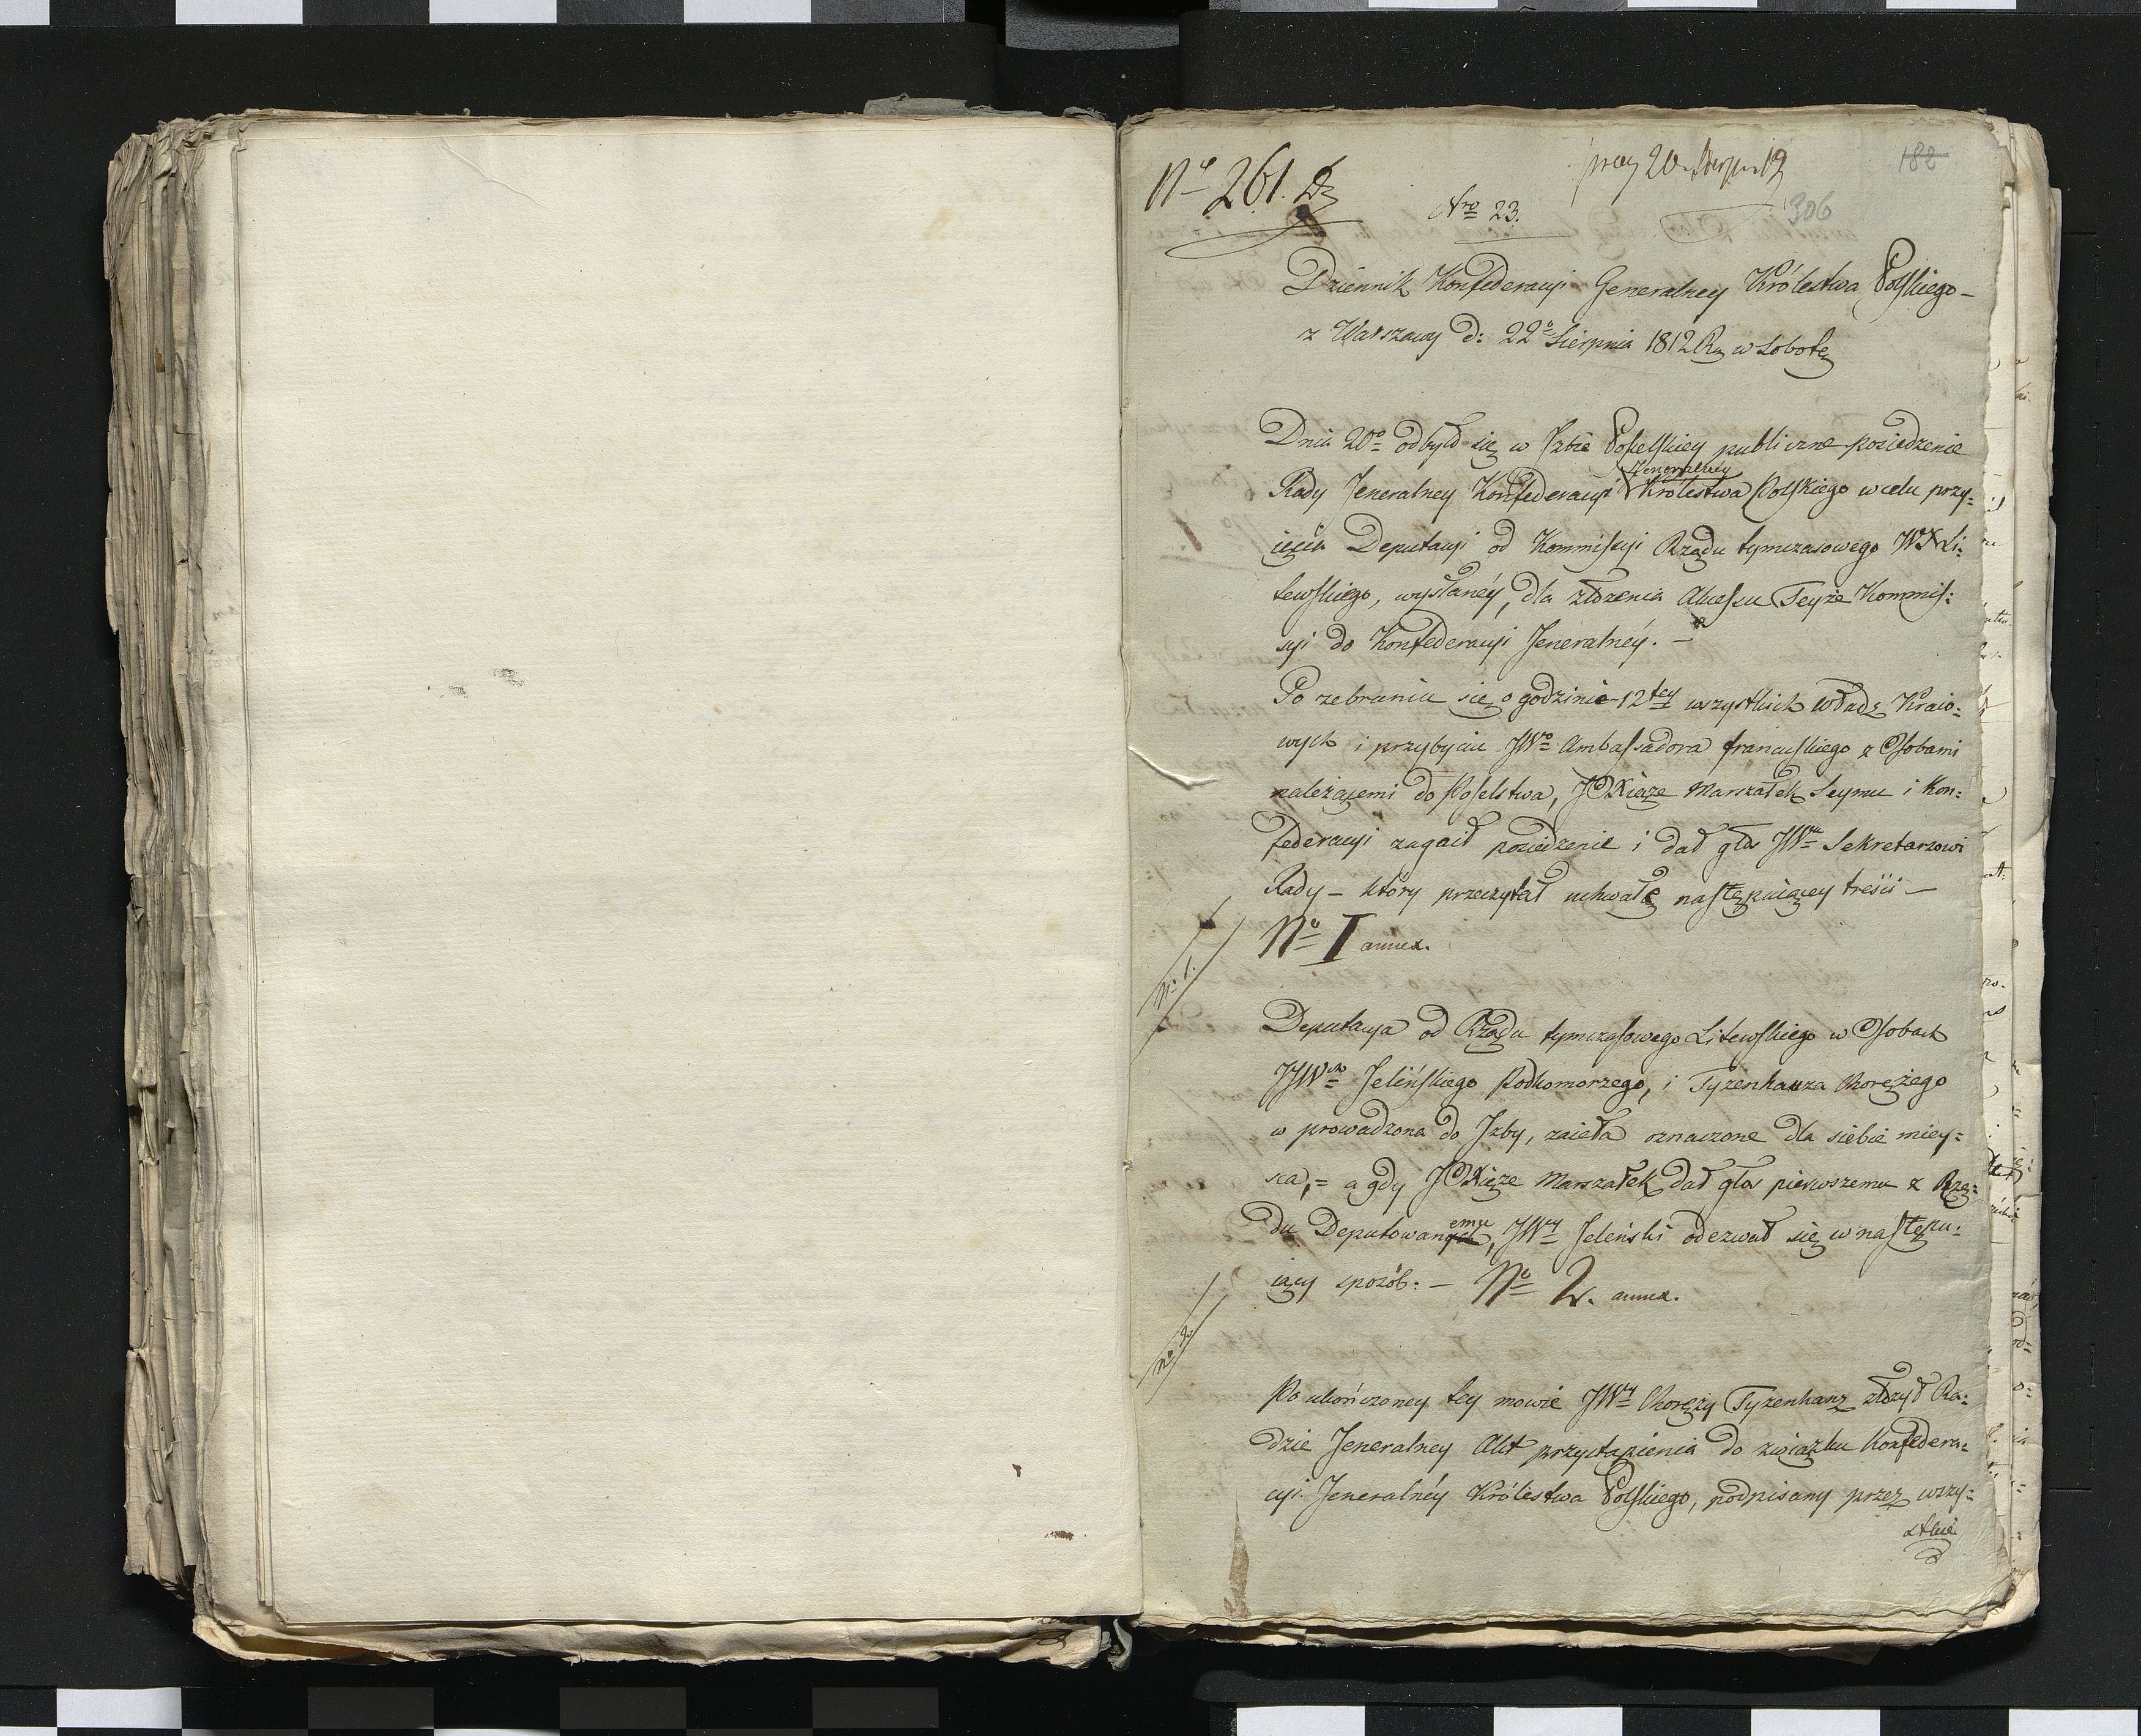 No 261. Dz
Sierpn. 12
182
306
Nro 23.
Dziennik Konfederacyi Generalney Królestwa Polskiego –
z Warszawy d: 22o Sierpnia 1812 R. w Sobotę
Dnia 20o odbyło się w Izbie Poselskiey publiczne posiedzenie
Rady Jeneralney Konfederacyi Jeneralney Królestwa Polskiego w celu przy=
ięcia Deputacyi od Kommissyi Rządu tymczasowego WX Li=
tewskiego, wysłanéy, dla złożenia Akcessu Teyże Kommis=
syi do Konfederacyi Jeneralnéy. –
Po zebraniu się o godzinie 12tey wszystkich władz Kraio=
wych i przybyciu JWo Ambassadora francuskiego z Osobami
należącemi do Poselstwa, JO Xiąże Marszałek Seymu i Kon=
federacyi zagaił posiedzenie i dał głos JWu Sekretarzowi
Rady – który przeczytał uchwałę następuiącey treści –
No I annex.
No 1.
Deputacya od Rządu tymczasowego Litewskiego w Osobach
JJWch Jelińskiego Podkomorzego, i Tyzenhauza Chorążego
w prowadzona do Izby, zaięła oznaczone dla siebie miey=
sca, = a gdy JO Xiąże Marszałek dał głos pierwszemu z Rzę=
du Deputowanych emu, JWy Jeleński odezwał się w następu=
iący sposób: – No 2. annex.
No 2.
Po ukończoney tey mowie JWy Chorąży Tyzenhauz złożył Ra=
dzie Jeneralney Akt przystąpienia do związku Konfedera=
cyi Jeneralnéy Królestwa Polskiego, podpisany przez wszy=
stkie